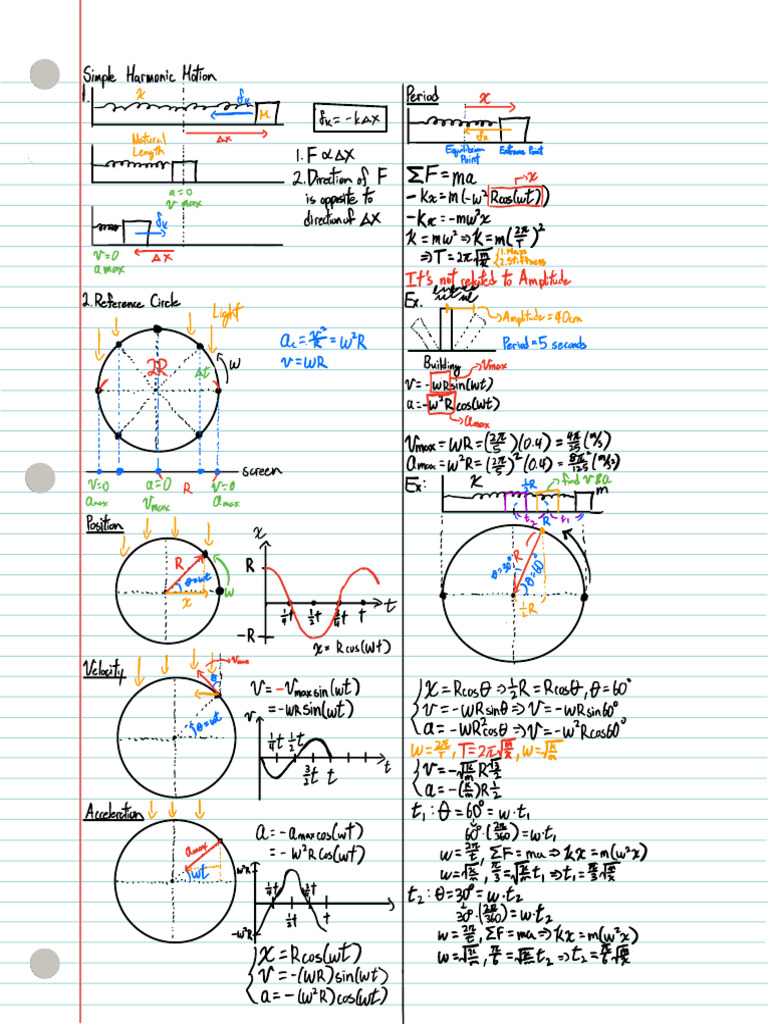 Simple Harmonic Motion
1.
x
fk
M
Δx
fk = -kΔx
Natural
Length
a=0
v max
1. F ∝ Δx
2. Direction of F
is opposite to
direction of Δx
fk
v=0
a max
Δx
2. Reference Circle
Light
2R
Δt
w
ac = v²/R = w²R
v = wR
screen
v=0
a max
a=0
Vmax
R
v=0
a max
Position
R
θ=wt
x
w
x
R
-R
1/4t
1/2t
3/4t
t
t
x = Rcos(wt)
Velocity
Vmax
θ
θ=wt
v = -Vmax sin(wt)
= -wRsin(wt)
v
1/4t
1/2t
3/2t
t
t
Acceleration
amax
wt
a = -amax cos(wt)
= -w²Rcos(wt)
w²R
-w²R
1/4t
1/2t
3/4t
t
x = Rcos(wt)
v = -(wR)sin(wt)
a = -(w²R)cos(wt)
Period
x
fk
Equilibrium
Point
Extreme Point
ΣF = ma
x
-kx = m(-w² Rcos(wt))
-kx = -mw²x
k = mw² ⇒ k = m(2π/T)²
⇒ T = 2π√(m/k)
1. Mass
2. Stiffness
It's not related to Amplitude
Ex.
Amplitude = 40cm
Period = 5 seconds
Building
Vmax
v = -wRsin(wt)
a = -w²Rcos(wt)
amax
Vmax = wR = (2π/5)(0.4) = 4π/25 (m/s)
amax = w²R = (2π/5)²(0.4) = 8π²/125 (m/s²)
Ex:
k
1/2R
find v & a
m
t2
R
t1
R
θ=30°
θ=60°
1/2R
x = Rcosθ ⇒ 1/2R = Rcosθ, θ = 60°
v = -wRsinθ ⇒ v = -wRsin60°
a = -wR²cosθ ⇒ v = -w²Rcos60°
w = 2π/T, T = 2π√(m/k), w = √(k/m)
v = -√(k/m) R √3/2
a = -(k/m)R 1/2
t1: θ = 60° = w·t1
60°·(2π/360) = w·t1
w = 2π/t, ΣF = ma ⇒ kx = m(w²x)
w = √(k/m), π/3 = √(k/m) t1 ⇒ t1 = π/3 √(m/k)
t2: θ = 30° = w·t2
30°·(2π/360) = w·t2
w = 2π/t, ΣF = ma ⇒ kx = m(w²x)
w = √(k/m), π/6 = √(k/m) t2 ⇒ t2 = π/6 √(m/k)